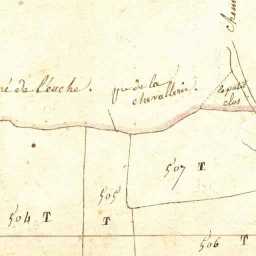 chem
ré de l'euche.
pre de la
chevallerie.
le petit
clos
507 T
505
T
504 T
506 T